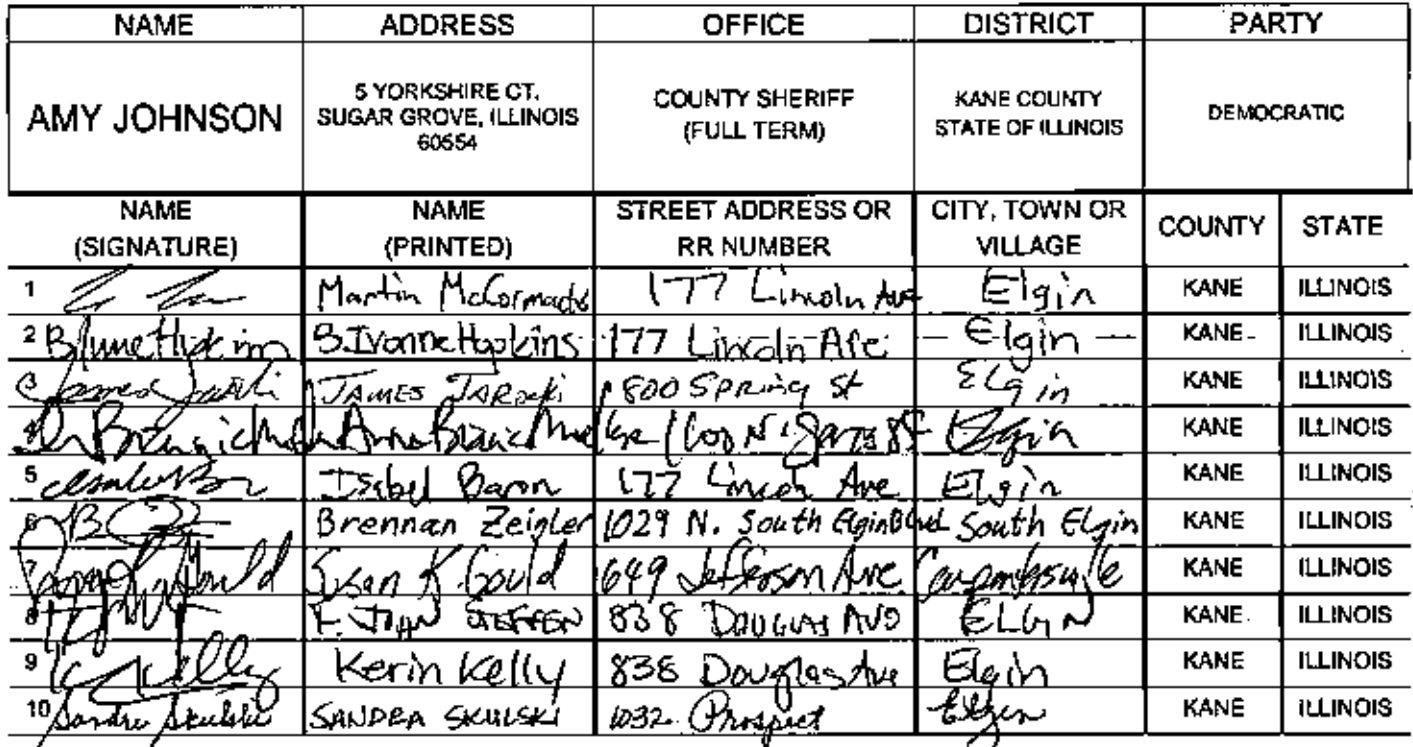 NAME ADDRESS OFFICE DISTRICT PARTY
AMY JOHNSON
5 YORKSHIRE CT.
SUGAR GROVE, ILLINOIS
60554
COUNTY SHERIFF
(FULL TERM)
KANE COUNTY
STATE OF ILLINOIS
DEMOCRATIC
NAME
(SIGNATURE)
NAME
(PRINTED)
STREET ADDRESS OR
RR NUMBER
CITY, TOWN OR
VILLAGE
COUNTY STATE
1 Martin McCormack 177 Lincoln Ave Elgin KANE ILLINOIS
2 B. Ivonne Hopkins 177 Lincoln Ave Elgin KANE ILLINOIS
3 JAMES JAROCKI 800 SPRING St Elgin KANE ILLINOIS
4 Anna Elgin KANE ILLINOIS
5 Isabel Baron 177 Lincoln Ave Elgin KANE ILLINOIS
6 Brennan Zeigler 1029 N. South Elgin Blvd South Elgin KANE ILLINOIS
7 Susan K. Gould 649 Jefferson Ave KANE ILLINOIS
8 STEFFEN 838 DOUGLAS AVE ELGIN KANE ILLINOIS
9 Kelly Kerin Kelly 838 Douglas Ave Elgin KANE ILLINOIS
10 Sandra Skulski SANDRA SKULSKI 1032 Prospect Elgin KANE ILLINOIS